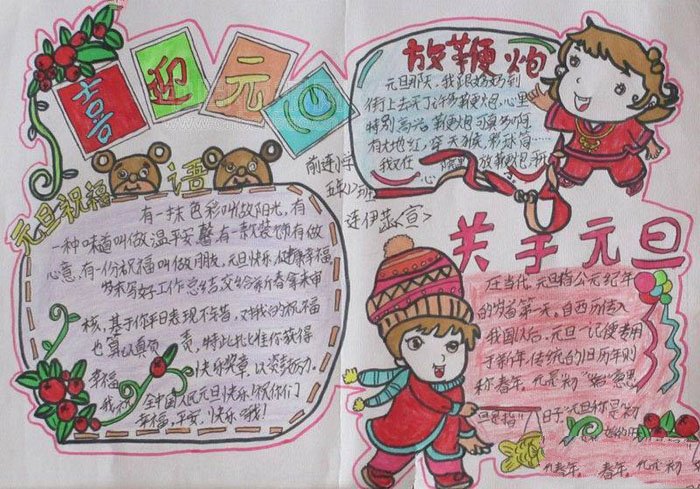 喜迎元旦
元旦祝福语
有一抹色彩叫做阳光,有
一种味道叫做温平安馨有一款装颂有做
心意,有一份祝福叫做朋友,元旦快乐,健康幸福,
岁末写好工作总结交给新春拿来审
核,基于你平日表现不错,对我的祝福
也算认真负责,特此批准你获得
幸福快乐奖章,以资鼓励。
我祝全中国人民元旦快乐!祝你们
幸福,平安,快乐哦!
前进小学
五年(2)班
连伊恭宣
放鞭炮
元旦那天,我跟妈妈到
街上去买了许多鞭炮,心里
特别高兴。鞭炮可真多啊,
有大地红,穿天猴,彩球筒……
我又在院里放鞭炮
关于元旦
在当代,元旦指公元纪年
的岁首第一天。自西历传入
我国以后,元旦一记便专
于新年,传统的旧历年则
称春年。元是"初""始"意思
旦是指"日子"元旦称是"初
春年。春年。元是初